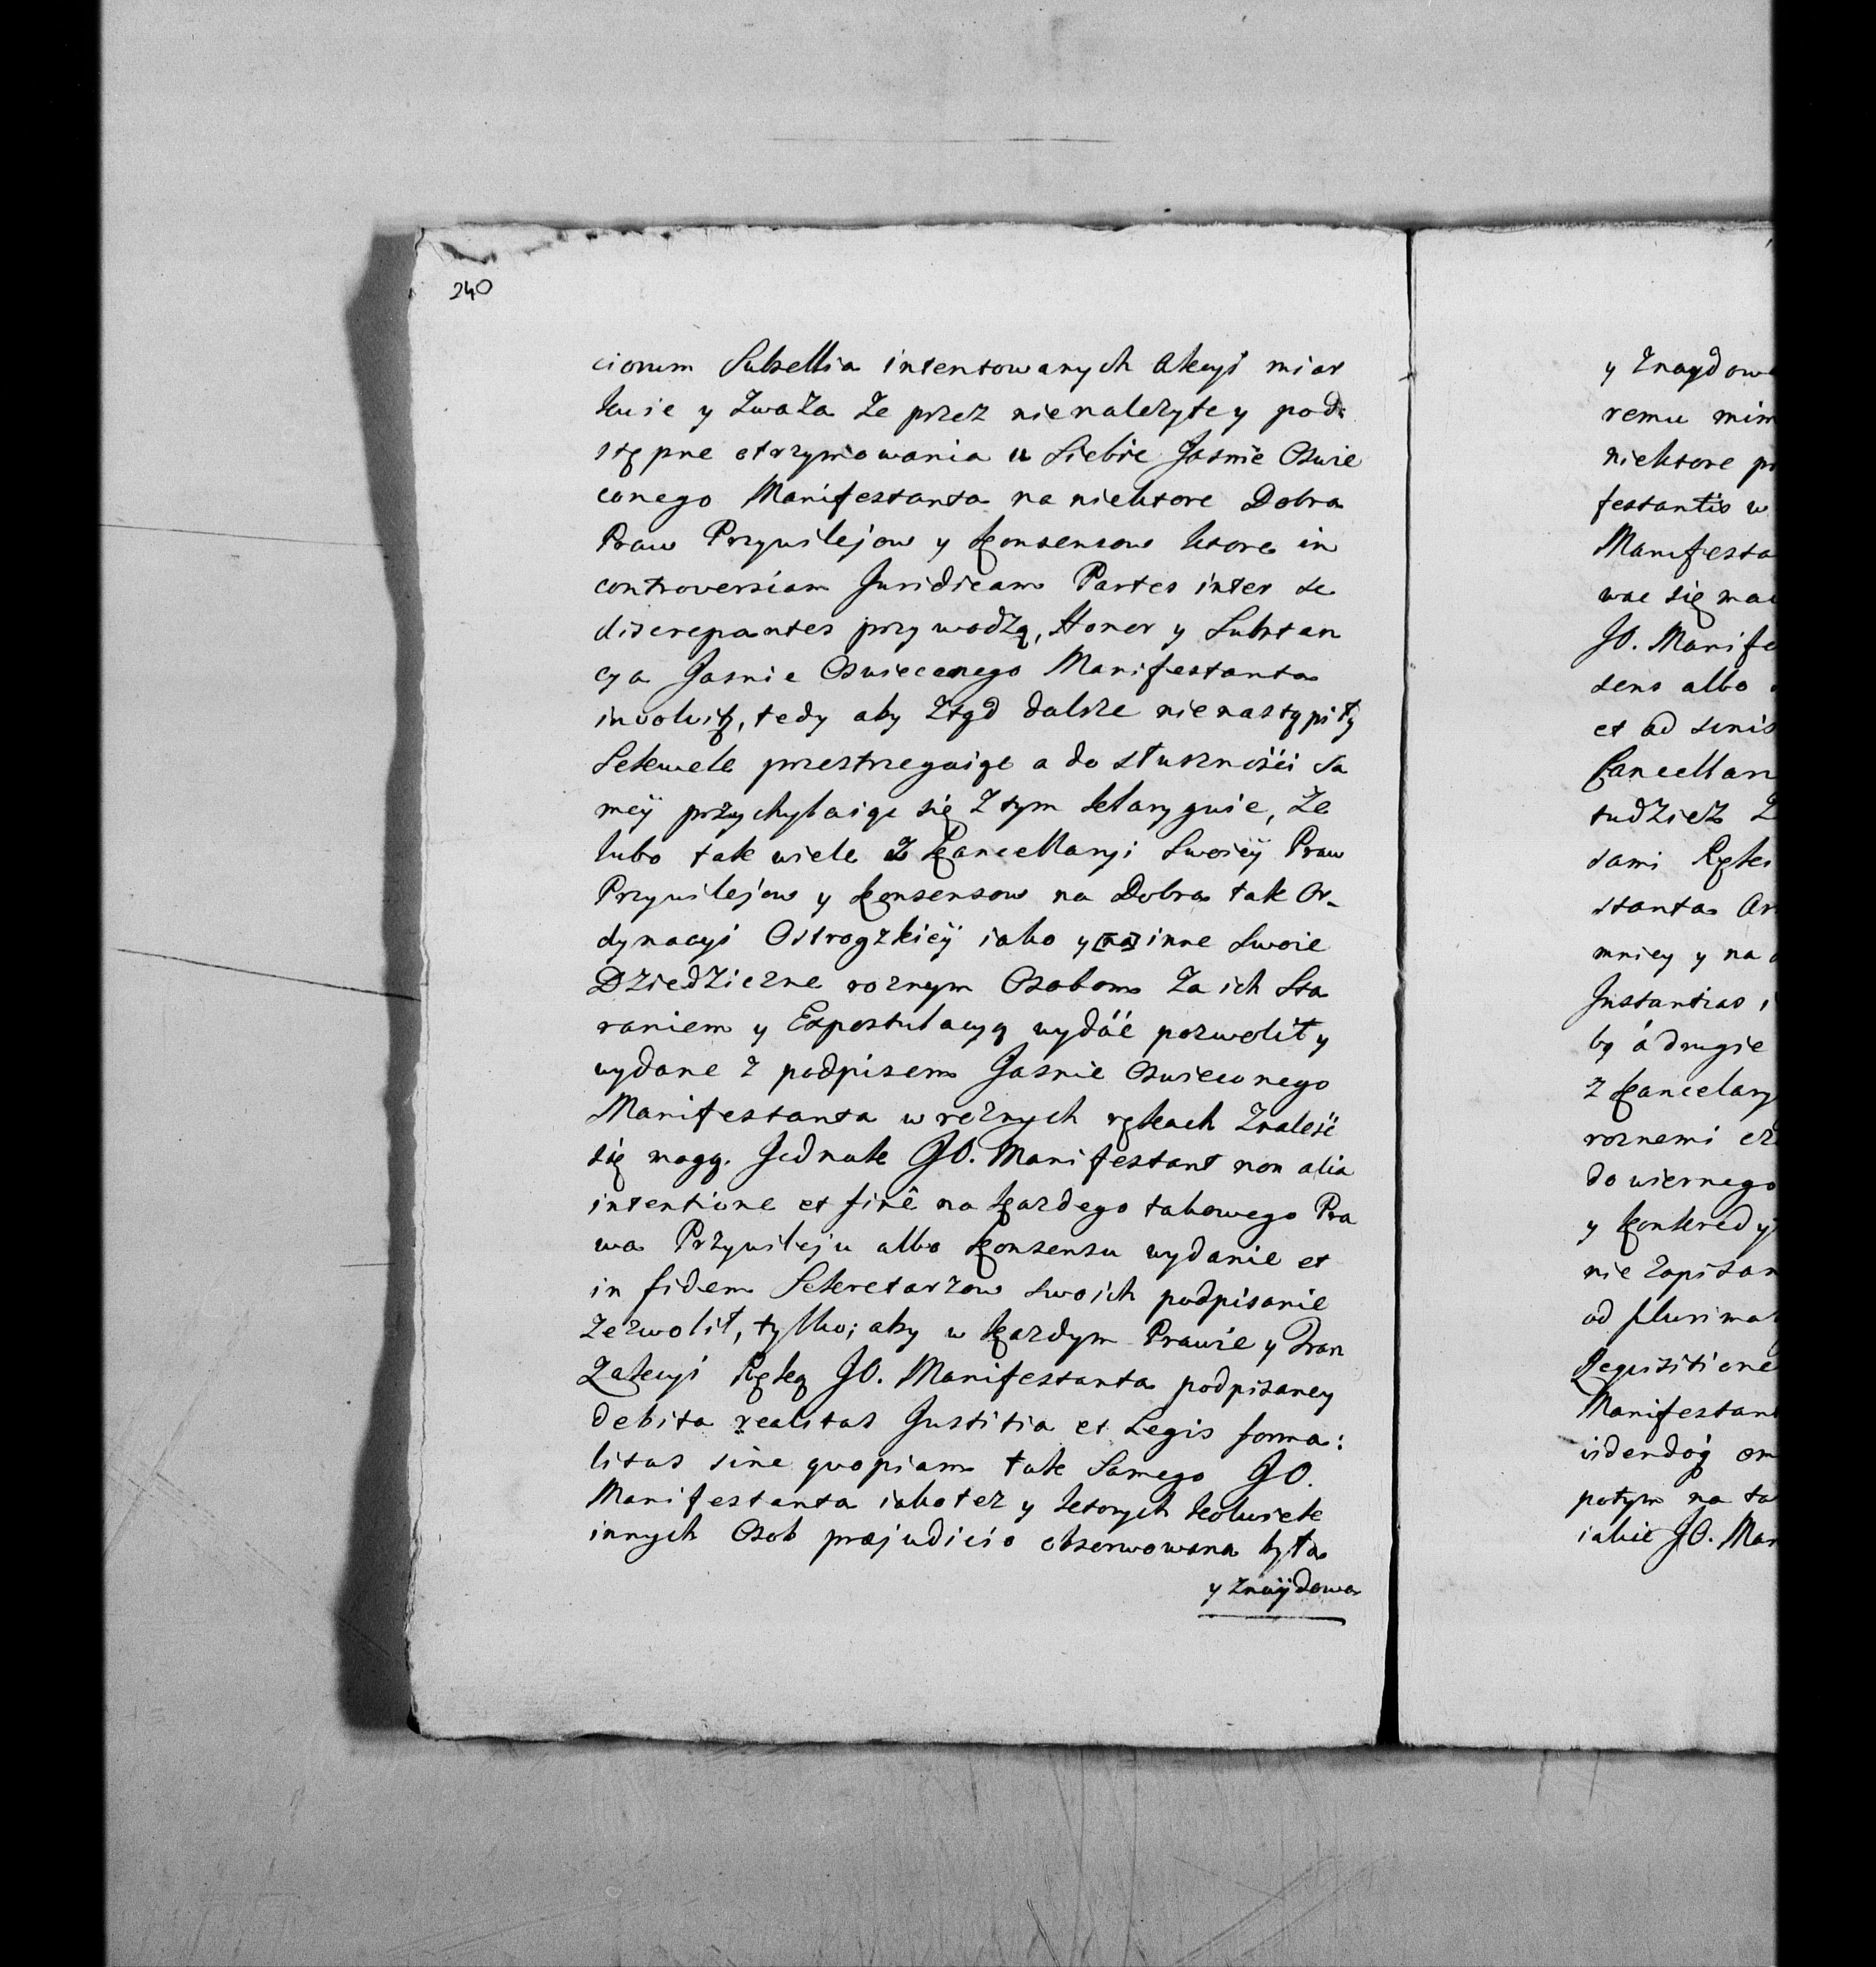 240
ciorum Subsellia intentowanych Akcyi miar
kuie y zwaza ze przez nienalezyte y pod:
stępne otrzymowania u Siebie Jasnie Oswie
conego Manifestanta na niektore Dobra
Praw Przywilejow y Konsensow ktore in
controversiam Juridicam Partes inter se
discrepantes przywodzą, Honor y Substan
cya Jasnie Oswieconego Manifestanta
involvitę, tedy aby ztąd dalsze nienastąpiły
Sekwele przestrzegaiąc a do słusznośći sa
meÿ przychylaiąc się z tym deklaruie, ze
lubo tak wiele z Kancellaryi Swoieÿ Praw
Przywilejow y Konsensow na Dobra tak Or-
dynacyi Ostrogzkieÿ iako y [na] inne Swoie
Dziedziczne roznym Osobom za ich Sta
raniem y Expostulacyą wydáć pozwolił y
wydane z podpisem Jasnie Oswieconego
Manifestanta w roznych rękach znaleść
się mogą. Jednak JO. Manifestant non alia
intentione et finê na kazdego takowego Pra
wa Przywileju albo Konsensu wydanie et
in fidem Sekretarzow swoich podpisanie
zezwolił, tylko; aby w kazdym Prawie y Tran
zakcyi Ręką JO. Manifestanta podpisaney
debita realitas Justitia et Legis forma:
litas sine quopiam tak Samego JO.
Manifestanta iako tez y ktorych kolwiek
innych Osob præjudicio obserwowana była
y znaÿdowa
y znaydowa
remu mim
niektore pr
festantis w
Manifesta
wac się ma
JO. Manife
sens albo
et ad sinis
Cancellar
tudziez Z
sami Ręki
stanta Or
mniey y na
Instantias i
bą á drugie
z Kancelary
roznemi cz
do wiernego
y Konkredy
nie zapisan
ad plurimas
Requisitione
Manifestant
videndóq om
potym na ta
iakie JO. Man